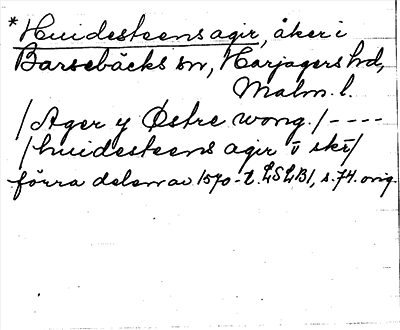 *Huidesteens agir, åker i
Barsebäcks sn, Harjagers hd,
Malm. l.
/Ager y Østre wong./----
/huidesteens agir v skr/
förra delen av 1570-t. LSLB1, s. 74. orig.